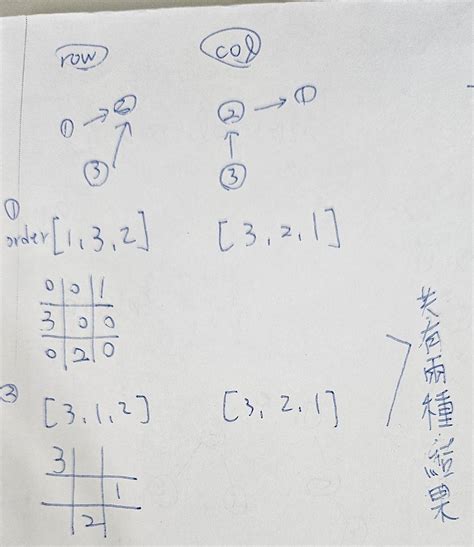 row col
① → ② ② → ①
③ ③
①
order [1,3,2] [3,2,1]
0 0 1
3 0 0
0 2 0
③ [3,1,2] [3,2,1]
3
1
2
共有兩種結果